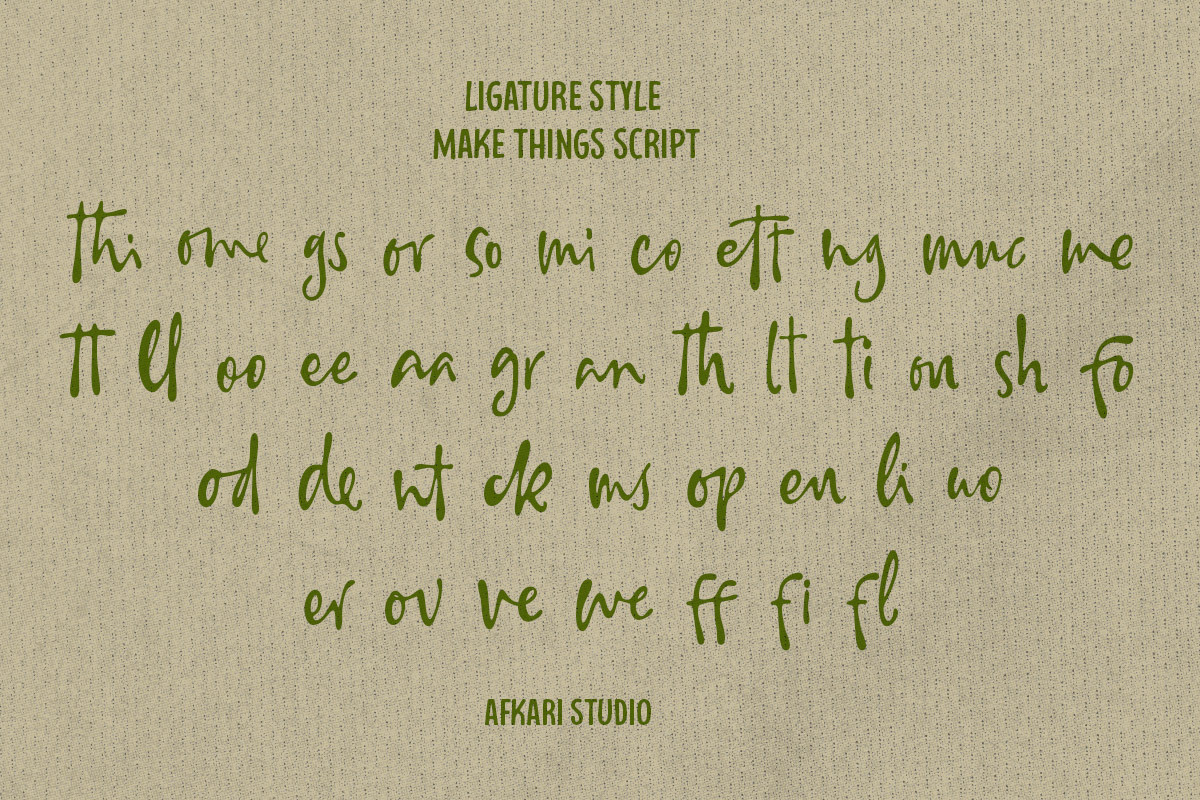 LIGATURE STYLE
MAKE THINGS SCRIPT
tthi ome gs or so mi co ett ng muc me
tt ll oo ee aa gr an th lt ti on sh fo
od de nt ck ms op en li uo
er ov ve we ff fi fl
AFKARI STUDIO